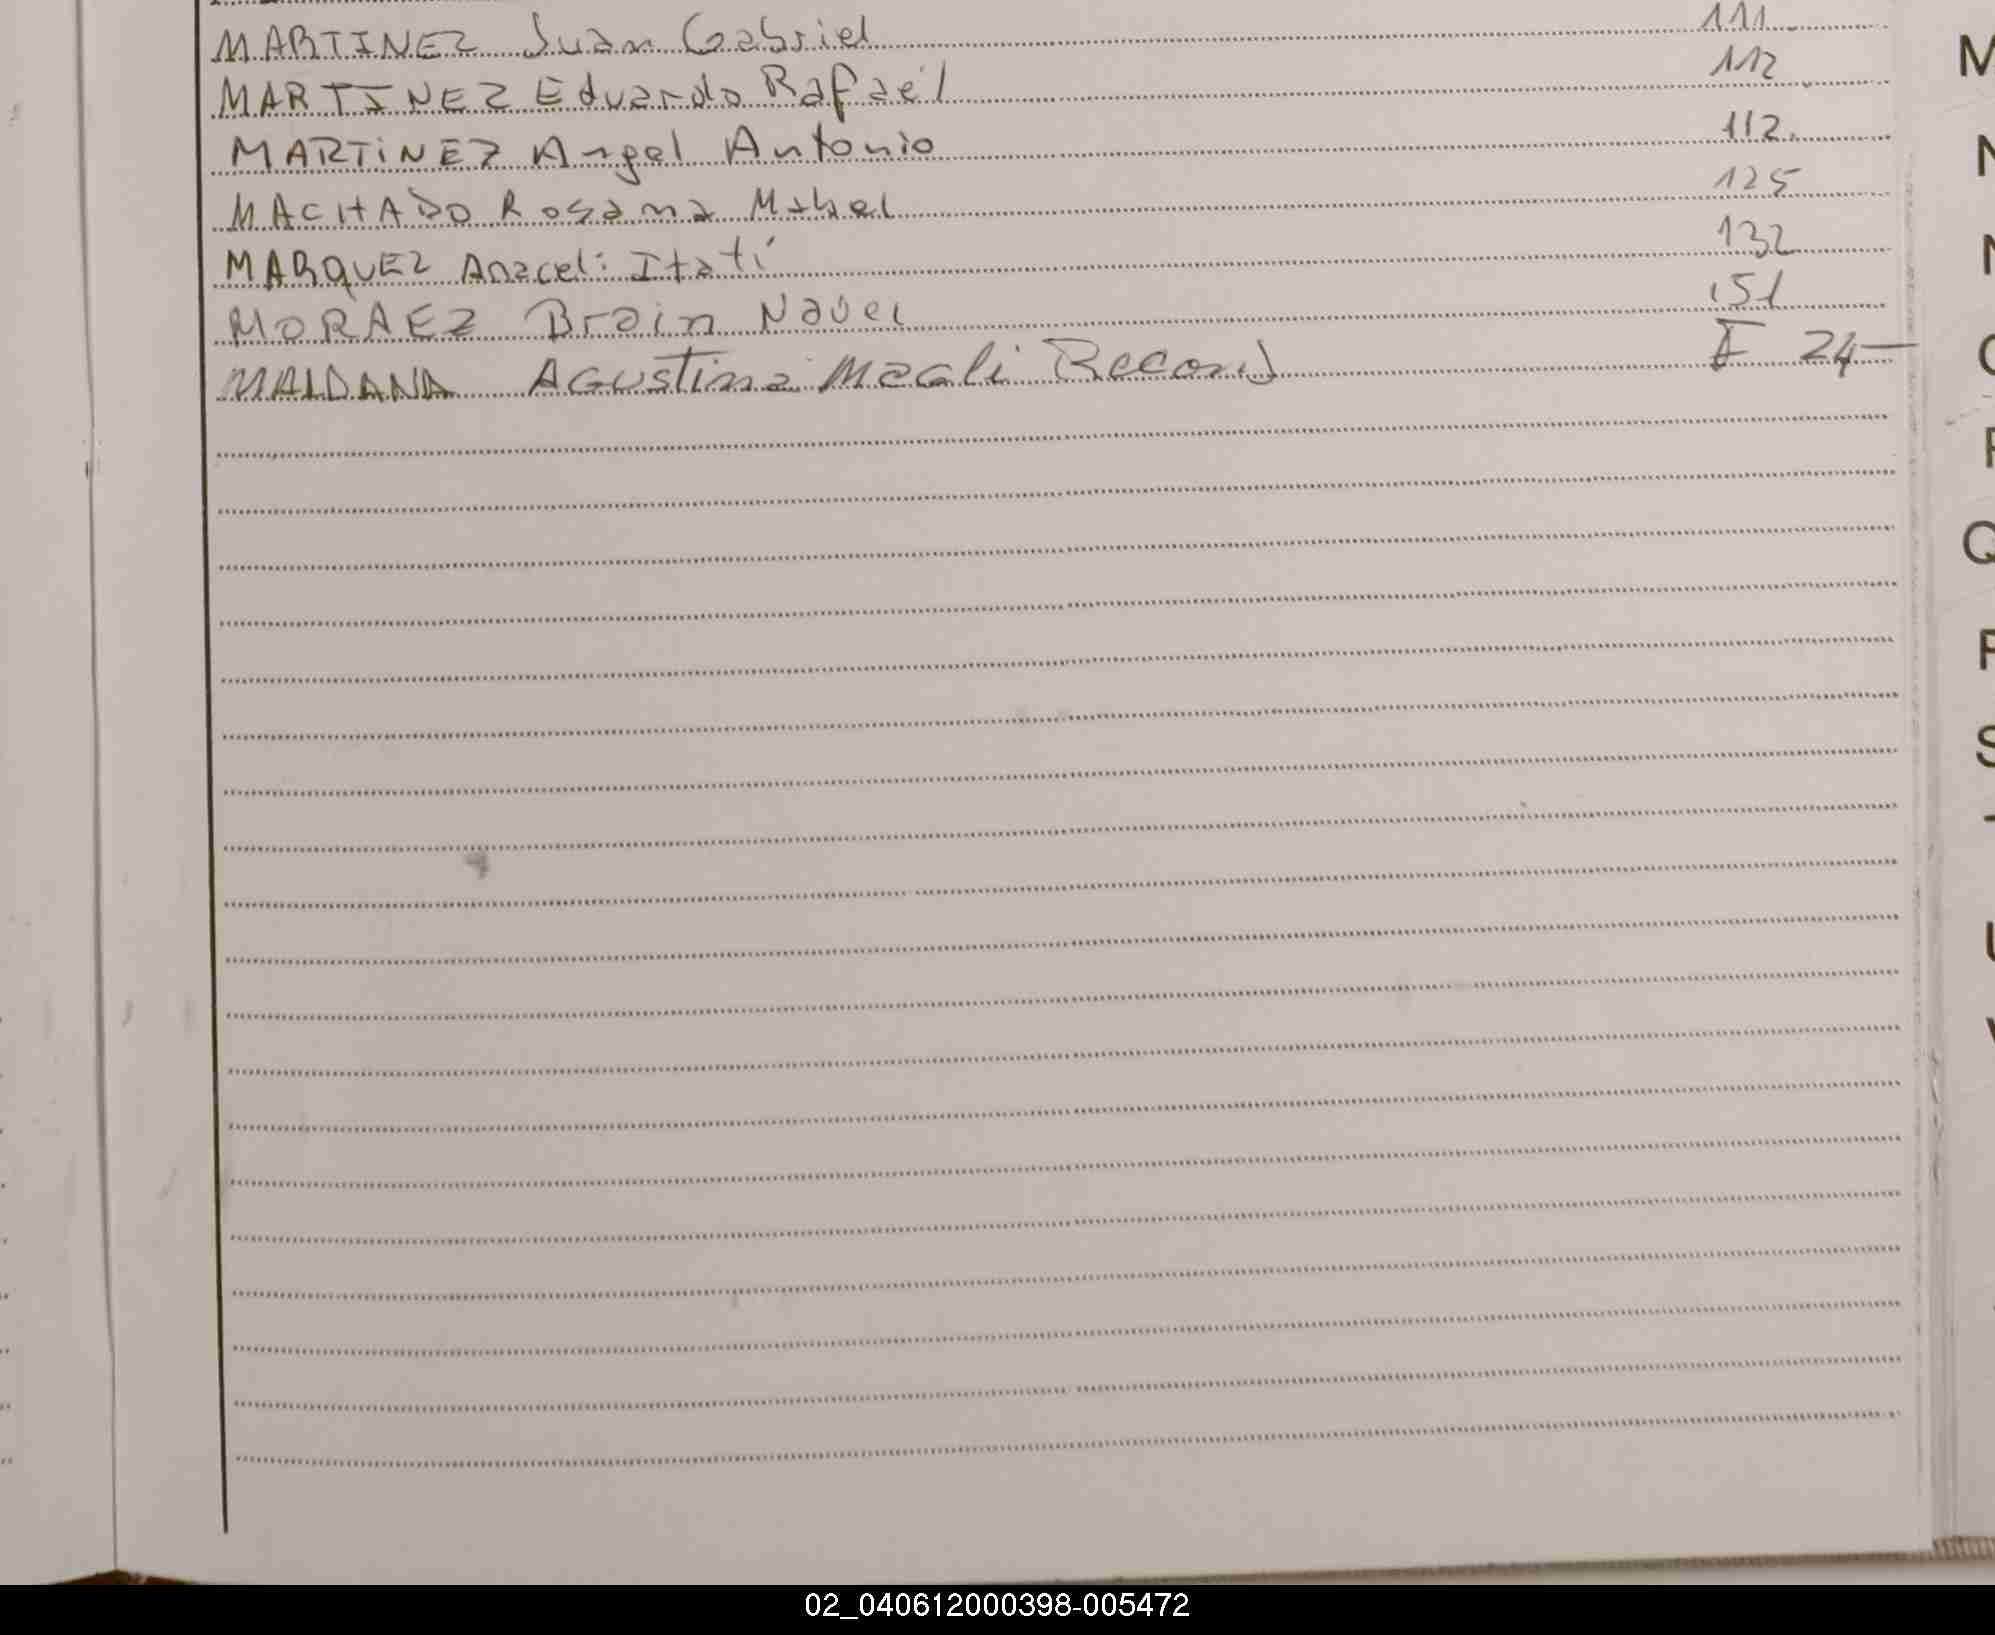 MARTINEZ Juan Gabriel 111
MARTINEZ Eduardo Rafael 112
MARTINEZ Angel Antonio 112
MACHADO Rosana Mabel 125
MARQUEZ Araceli Itatí 132
MORAEZ Brain Nauel 151
MALDANA Agustina Magali Recon F 24
M
N
Q
S
02_040612000398-005472